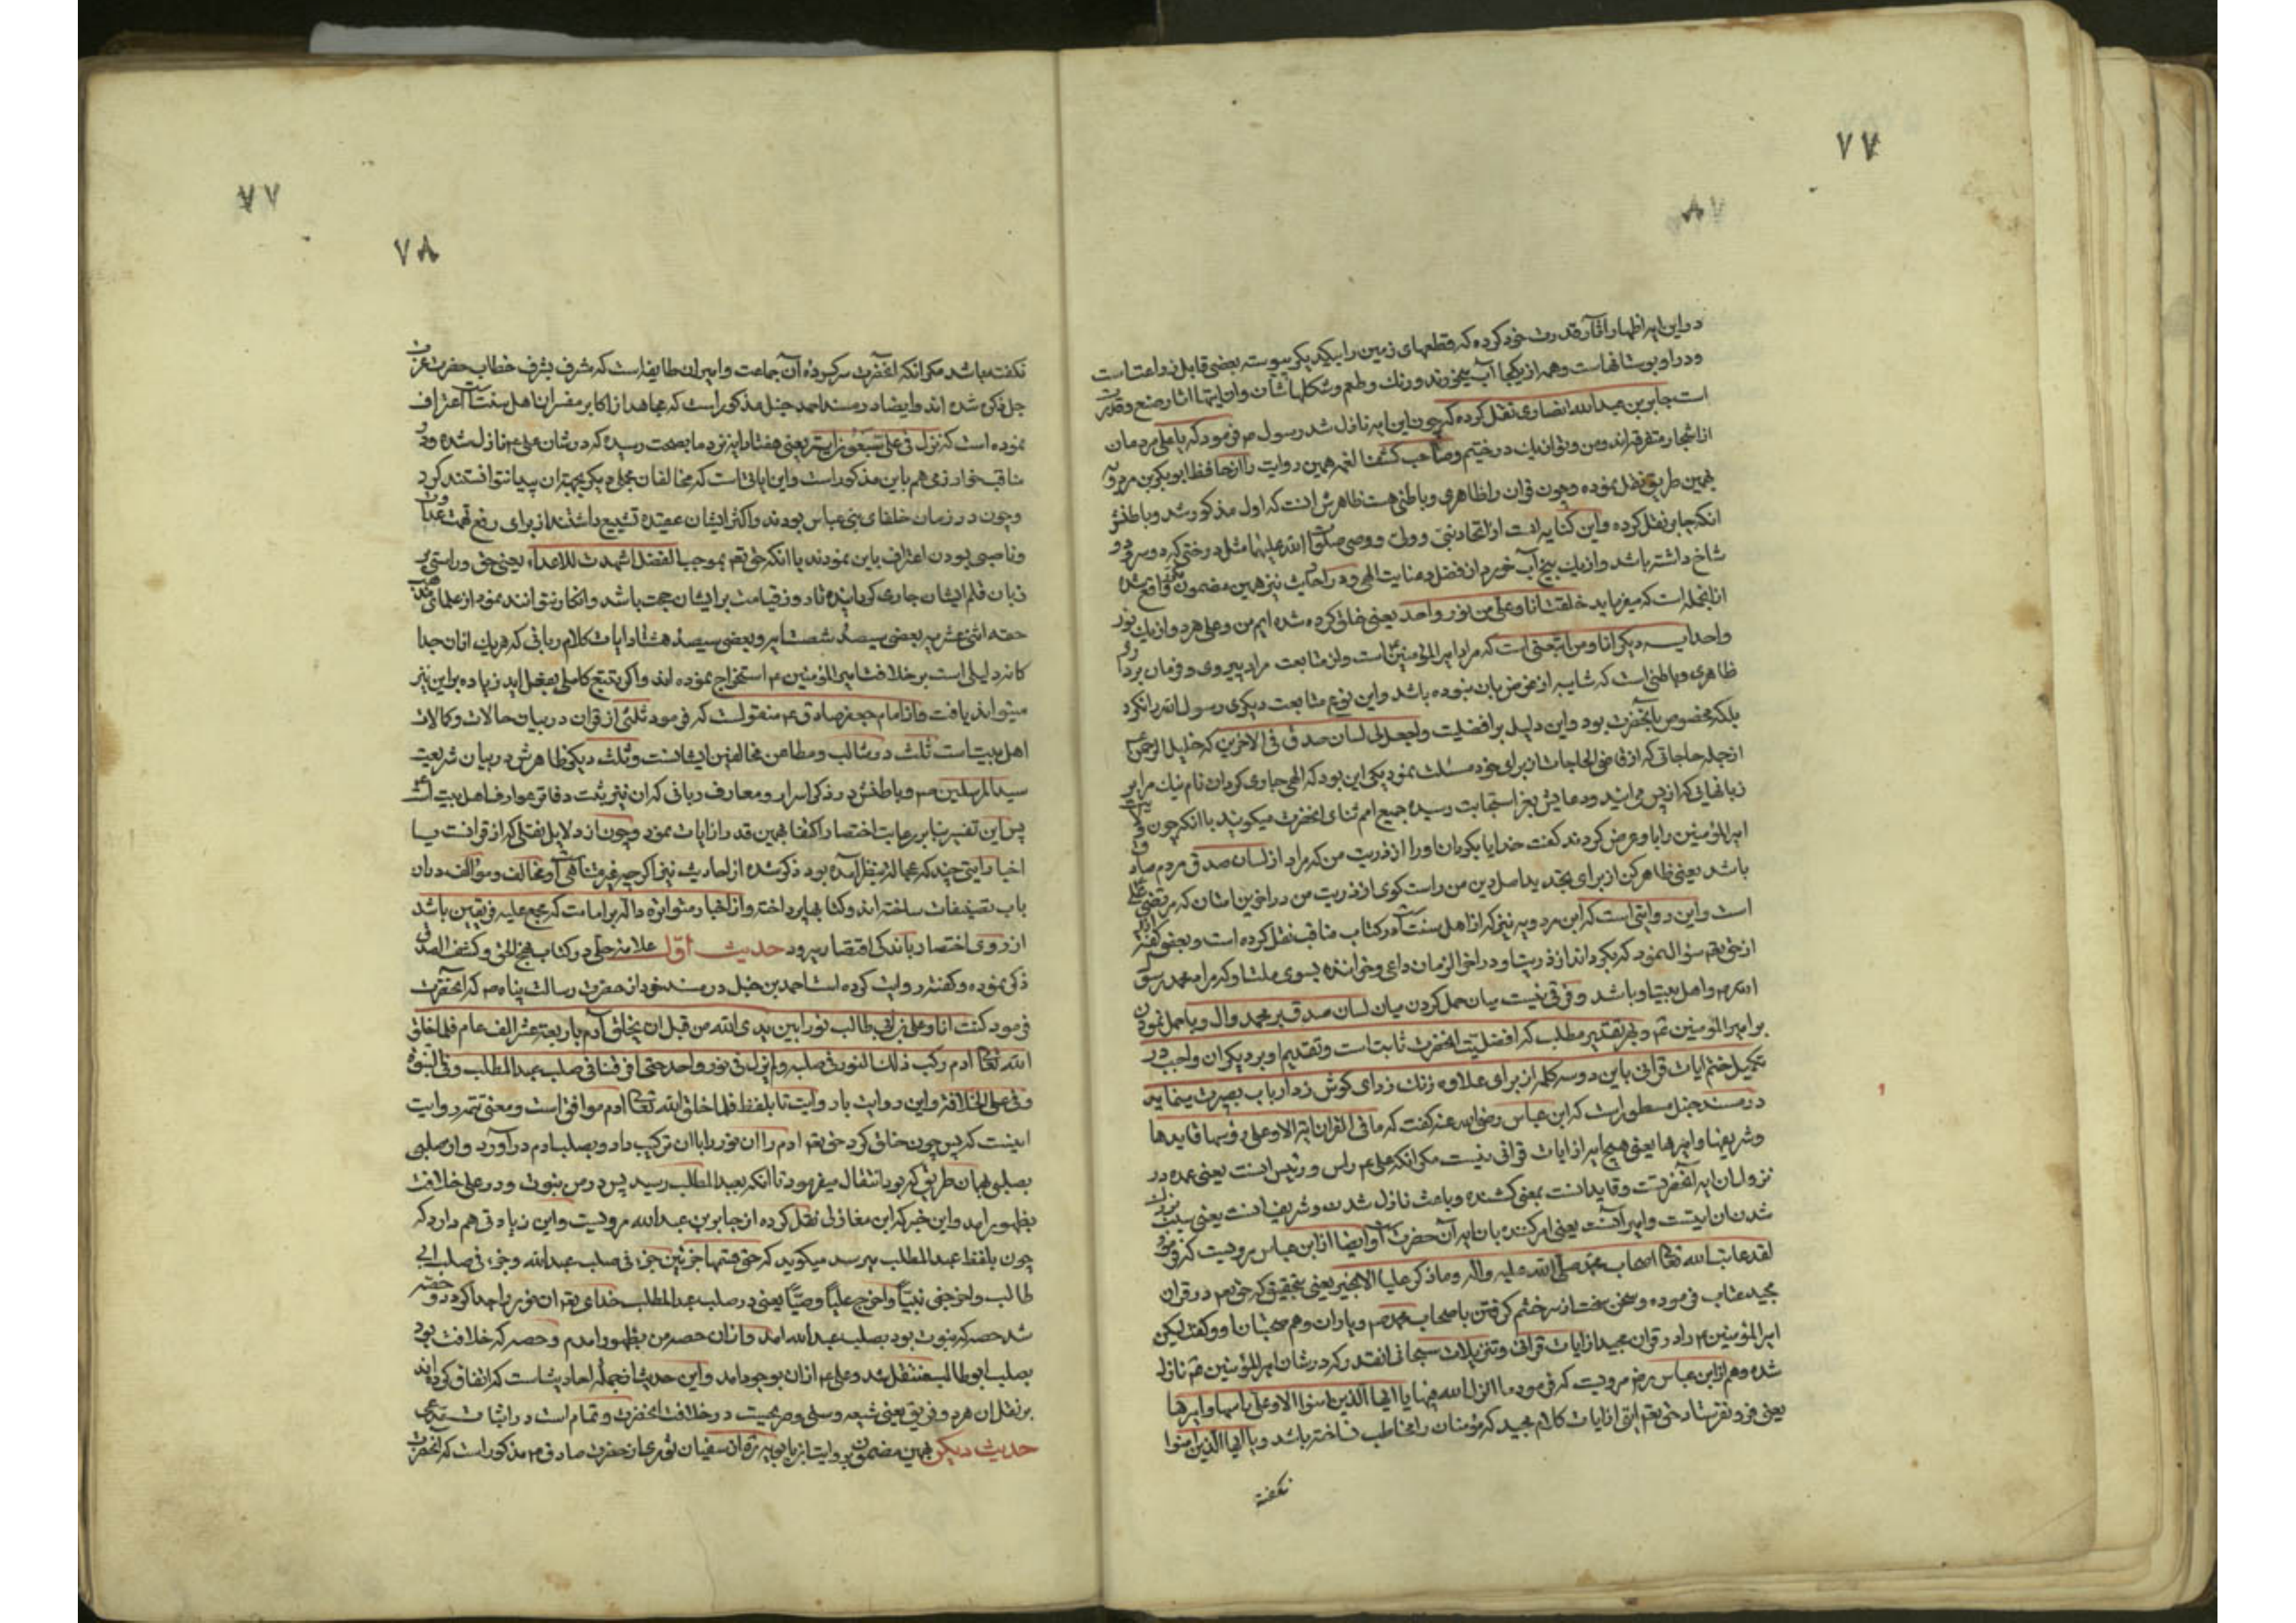 ۷۷
۸۷
در این ایه اظهار اثار قدرت خود کرده که قطعهای زمین را بیکدیکر پیوسته بعضی قابل زراعتست
و در او بوستانهاست و همه از یکجا آب میخورند و رنك و طعم و شکلها شان و ان اینها اثار صنع و قدرت
است جابر بن عبدالله انصاری نقل کرده که چون این ایه نازل شد رسول ص فرمود که یا علی مردمان
از اشجار متفرقه اند و من و تو از یك درختیم و صاحب کشف الغمه همین روایت را از حافظ ابوبکر بن مردویه
بهمین طریق نقل نموده و چون قران را ظاهری و باطنی هست ظاهرش انست که اول مذکور شد و باطنش
انکه جابر نقل کرده و این کنایه است از اتحاد نبی و ولی و وصی صلوة الله علیهما مثل درختی که دو سر و دو
شاخ داشته باشد و از یك بیخ آب خورد از فضل و عنایت الهی و در احادیث نیز همین مضمون واقع شده
از انجمله است که میفرماید خلقت انا و علی من نور واحد یعنی خلق کرده شده ایم من و علی هر دو از یك نور
واحد ایه دیکر انا و من اتبعنی است که مراد امیر المؤمنین است و از متابعت مراد پیروی و فرمان برداری
ظاهری و باطنی است که شایبه از غرض بان نبوده باشد و این نوع متابعت دیکری رسول الله را نکرد
بلکه مخصوص بآنحضرت بود و این دلیل بر افضلیت واجعل لی لسان صدق فی الاخرین که خلیل الرحمن
از جمله حاجاتی که از قاضی الحاجات از برای خود مسئلت نمود یکی این بود که الهی جاری کردان نام نیك مرا بر
زبانهای که از پس می ایند و دعایش بعز استجابت رسیده جمیع امم ثنای انحضرت میکویند با انکه چون
امیر المؤمنین را باو عرض کردند کفت خدایا بکردان او را از ذریت من که مراد از لسان صدق مردم صادق
باشد یعنی ظاهر کن از برای تجدید اصل دین من راست کوی از ذریت من در اخرین امتان که مرتضی علی
است و این روایتی است که ابن مردویه نیز که از اهل سنت است در کتاب مناقب نقل کرده است و بعضی کفته
از حق تع سؤال نمود که بکرداند از ذریت او در اخر الزمان داعی و خوانندهٔ بسوی ملت او که مراد محمد رسول
الله ص و اهل بیت او باشد و فرقی نیست میان حمل کردن میان لسان صدق بر محمد و ال و یا حمل نمودن
بر امیر المؤمنین ع و بهر تقدیر مطلب که افضلیت انحضرت ثابت است و تقدیم او بر دیکران واجب در
تکمیل ختم ایات قرانی باین دو سه کلمه از برای علاوه زنك زدای کوش زد ارباب بصیرت مینماید
در مسند حنبل مسطور است که ابن عباس رضی الله عنه کفت که ما فی القران ایة الا و علی راسها و قایدها
و شریفها و امیرها یعنی هیچ ایه از ایات قرانی نیست مکر انکه علی ع راس و رئیس انست یعنی عمده در
نزول ان ایه آنحضرتست و قاید انست بمعنی کشنده و باعث نازل شدن و شریف انست یعنی سبب
شدن ان ایتست و امیر آنست یعنی امر کننده بان ایه آن حضرت است و ایضا از ابن عباس مرویست که فرمود
لقد عاتب الله تعالی اصحاب محمد صلی الله علیه و اله و ما ذکر علیا الا بخیر یعنی بتحقیق که حق تع در قران
مجید عتاب فرموده و سخن سخت از سر خشم کرفتن با صحاب محمد ص و یاران و هم صحبتان او و کفت لیکن
امیر المؤمنین ع را در قران مجید از ایات قرانی و تنزیلات سبحانی انقدر که در شان امیر المؤمنین ع نازل
شده و هم از ابن عباس رض مرویست که فرمود ما انزل الله فیها یا ایها الذین امنوا الا و علی راسها و امیرها
یعنی فرو نفرستاد حق تع ایتی از ایات کلام مجید که مؤمنان را مخاطب ساخته باشد و یا ایها الذین امنوا
نکفته
۷۷
۷۸
نکفته باشد مکر انکه انحضرت سرکردهٔ آن جماعت و امیر ان طایفه است که شرف بشرف خطاب حضرت عزت
جل ذکره شده اند و ایضا در مسند احمد حنبل مذکور است که مجاهد از اکابر مفسران اهل سنت است اعتراف
نموده است که نزل فی علی سبعون ایة یعنی هفتاد ایه نزد ما بصحت رسیده که در شان علی ع نازل شده و در
مناقب خوارزمی هم باین مذکور است و این ایاتی است که مخالفان بجمله دیکر بجهة ان پیدا نتوانستند کرد
و چون در زمان خلفای بنی عباس بودند و اکثر ایشان عقیده تشیع داشتند از برای رفع تهمت عداوت
و ناصبی بودن اعتراف باین نمودند با انکه حق تع بموجب الفضل ما شهدت به الاعداء یعنی حق و راستی بر
زبان و قلم ایشان جاری کردانیده تا روز قیامت بر ایشان حجت باشد و انکار نتوانند نمود از علمای مذهب
حقه اثنی عشریه بعضی سیصد و شصت ایه و بعضی سیصد و هشتاد ایات کلام ربانی که هر یك از ان جدا
کانه دلیلی است بر خلافت امیر المؤمنین ع استخراج نموده اند و اکر تتبع کاملی بفعل اید زیاده بر این نیز
میتواند یافت و از امام جعفر صادق ع منقولست که فرمود ثلثی از قران در بیان حالات و کمالات
اهل بیت است و ثلث در مثالب و مطاعن مخالفین ایشانست و ثلث دیکر ظاهرش در بیان شریعت
سید المرسلین ص و باطنش در ذکر اسرار و معارف ربانی که ان نیز زینت دفاتر عوارف اهل بیت است
پس این تفسیر بنا بر رعایت اختصار اکتفا بهمین قدر از ایات نمود و چون از دلایل نقلی که از قرانست با
اخبار ایتی چند که عجالة بنظر آمده بود ذکر شده از احادیث نیز اکر چه غیر متناهی است و مخالف و مؤالف در ان
باب تصنیفات ساخته اند و کتابها پرداخته و از اخبار متواتره داله بر امامت که مجمع علیه فریقین باشد
از روی اختصار باندکی اقتصار میرود حدیث اول علامه حلی در کتاب نهج الحق و کشف الصدق
ذکر نموده و کفته روایت کرده است احمد بن حنبل در مسند خود از حضرت رسالت پناه ص که انحضرت
فرمود کنت انا و علی بن ابی طالب نورا بین یدی الله من قبل ان یخلق آدم باربعة عشر الف عام فلما خلق
الله تعالی ادم رکب ذلك النور فی صلبه و لم یزل فی نور واحد حتی افترقنا فی صلب عبد المطلب و فی النبوة
و فی علی الخلافة و این روایت با روایت تا بلفظ فلما خلق الله تعالی ادم موافق است و معنی تتمه روایت
اینست که پس چون خلق کرد حق تع ادم را ان نور را با ان ترکیب داد و بصلب ادم در آورد و از صلبی
بصلبی بهمان طریق که بود انتقال میفرمود تا انکه بعبد المطلب رسید پس در من نبوت و در علی خلافت
بظهور امد و این خبر که ابن مغازلی نقل کرده از جابر بن عبدالله مرویست و این زیادتی هم دارد که
چون بلفظ عبد المطلب میرسد میکوید که حتی قسمها جزئین جزء فی صلب عبدالله و جزء فی صلب ابی
طالب و اخرجنی نبیا و اخرج علیا وصیا یعنی در صلب عبد المطلب خدای تع ان نور را جدا کرد و دو حصه
شد حصه که نبوت بود بصلب عبدالله امد و از ان حصه من بظهور امدم و حصه که خلافت بود
بصلب ابوطالب منتقل شد و علی ع از ان بوجود امد و این حدیث از جمله احادیثست که اتفاق کرده اند
بر نقل ان هر دو فریق یعنی شیعه و سنی و صریحست در خلافت انحضرت و تمام است در اثبات مدعی
حدیث دیکر بهمین مضمون روایت ابن بابویه ره از سفیان ثوری از حضرت صادق ع مذکور است که انحضرت